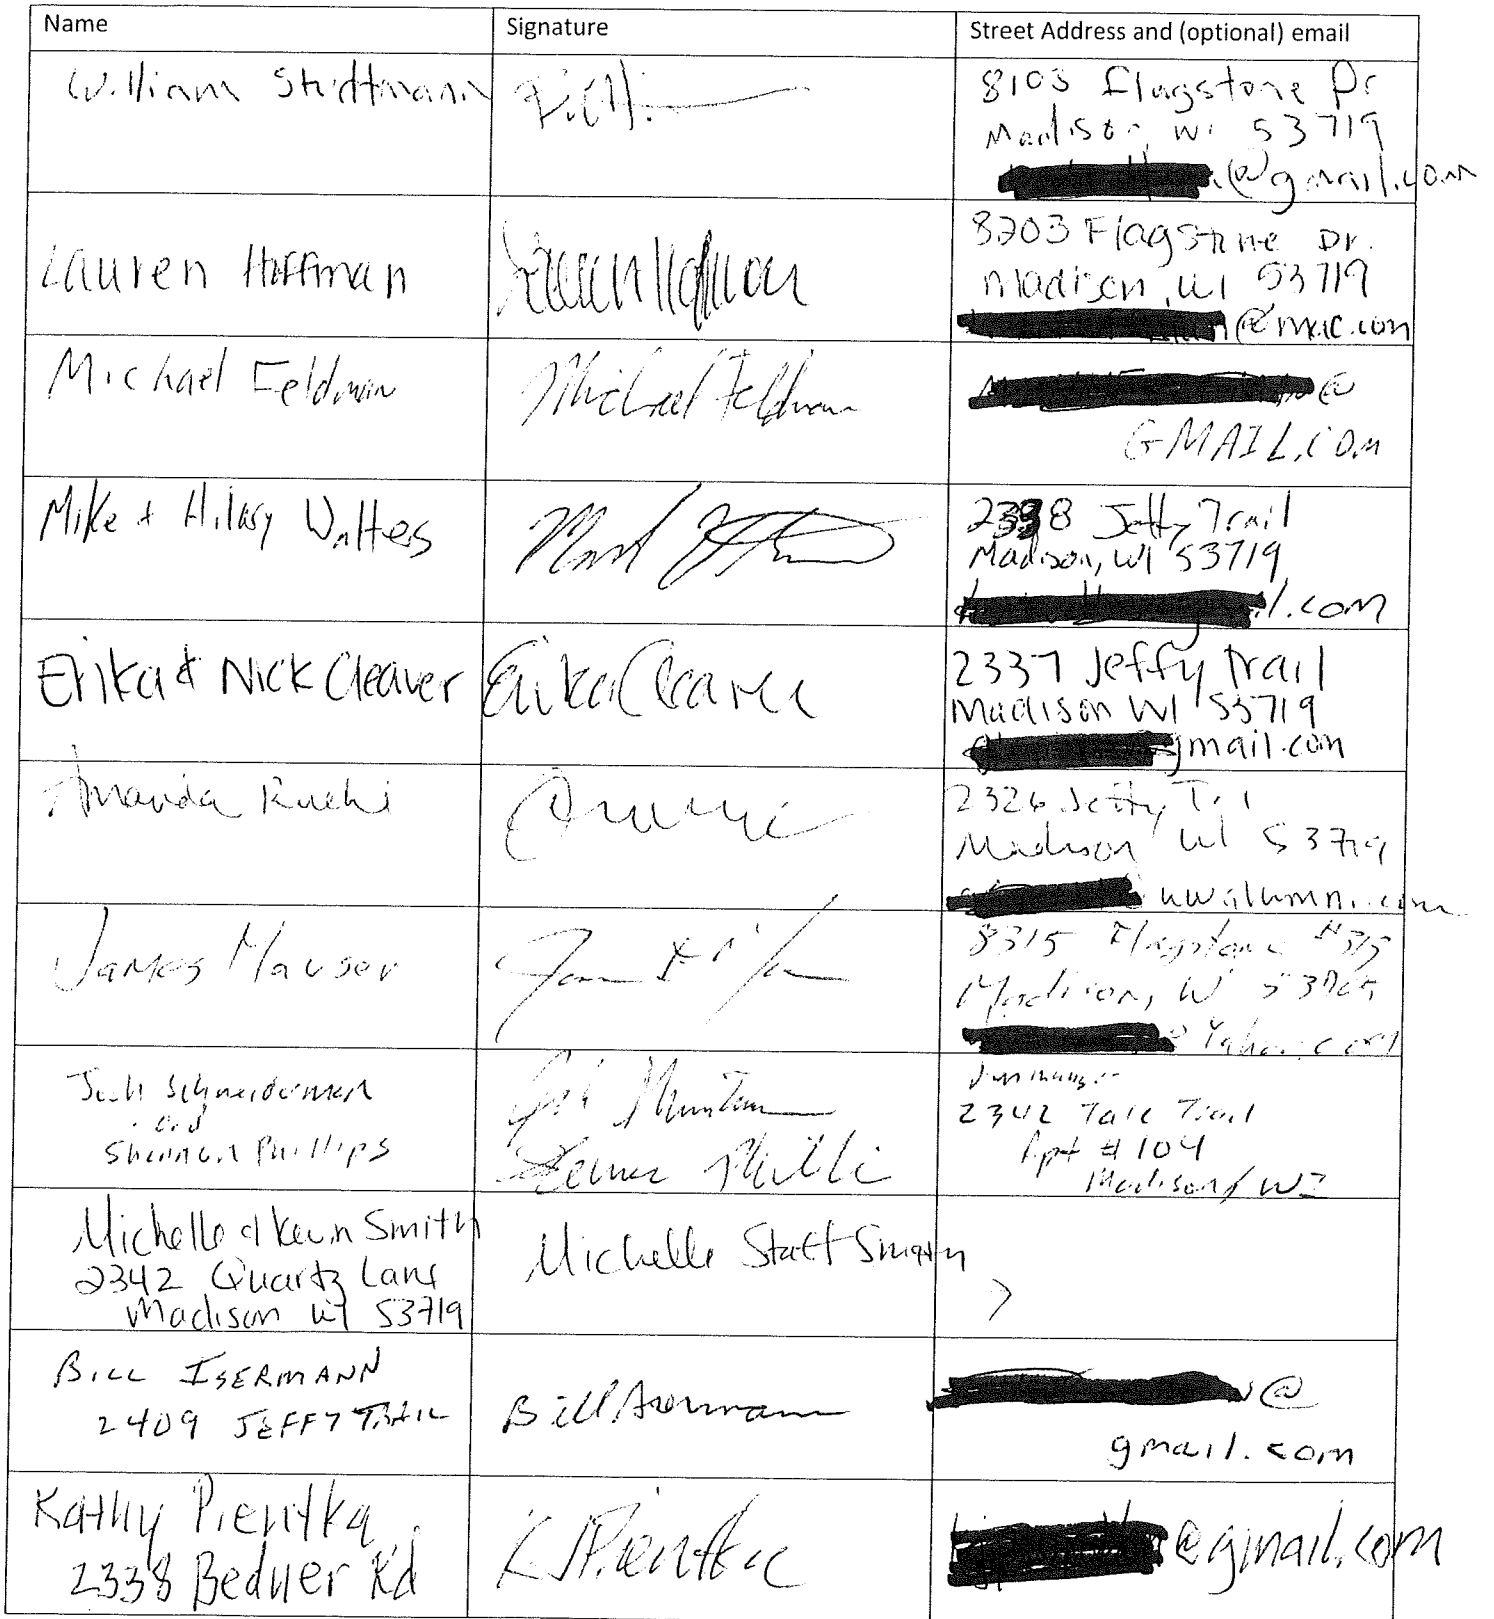 Name Signature Street Address and (optional) email
William 8103 Flagstone Dr
Madison, Wi 53719
@gmail.com
Lauren Hoffman Lauren Hoffman 8203 Flagstone Dr.
Madison, WI 53719
@mac.com
Michael Feldman Michael Feldman @
GMAIL.COM
Mike + Hilary Walters Jeffy Trail
Madison, WI 53719
il.com
Erika & Nick Cleaver Erika Cleaver 2337 Jeffy trail
Madison WI 53719
gmail.com
Amanda 2326 Jeffy Trl
Madison WI 53719
uwalumni.com
James Mauser 8315 Flagstone #315
Madison, W
@Yahoo.com
Josh Schneiderman
and
Shannon Phillips 2342 Tate Trail
Apt #104
Madison, WI
Michelle & Kevin Smith Michelle Statt Smith
2342 Quartz Lane
Madison WI 53719
BILL ISERMANN Bill Isermann @
2409 JEFFY TRAIL gmail.com
Kathy Pientka K Pientka @gmail.com
2338 Bedner Rd